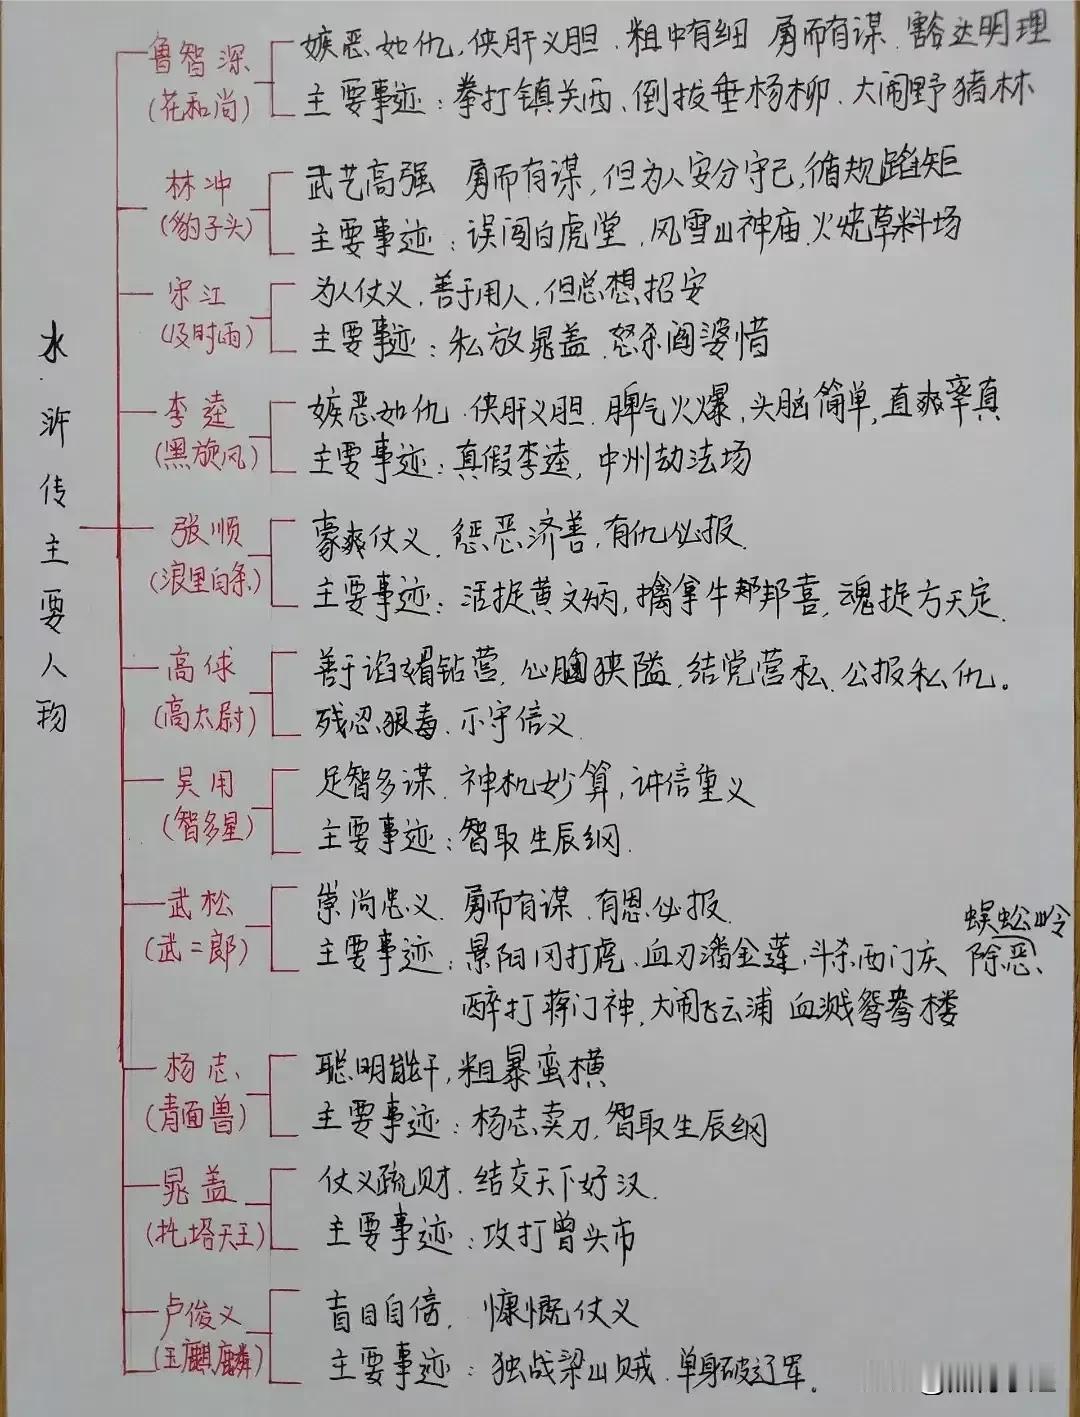 水浒传主要人物
鲁智深
(花和尚)
嫉恶如仇,侠肝义胆、粗中有细 勇而有谋、豁达明理
主要事迹:拳打镇关西、倒拔垂杨柳、大闹野猪林
林冲
(豹子头)
武艺高强 勇而有谋,但为人安分守己,循规蹈矩
主要事迹:误闯白虎堂、风雪山神庙、火烧草料场
宋江
(及时雨)
为人仗义,善于用人,但总想招安
主要事迹:私放晁盖、怒杀阎婆惜
李逵
(黑旋风)
嫉恶如仇、侠肝义胆、脾气火爆,头脑简单,直爽率真
主要事迹:真假李逵,中州劫法场
张顺
(浪里白条)
豪爽仗义、惩恶济善,有仇必报.
主要事迹:活捉黄文炳,擒拿牛邦喜,魂捉方天定.
高俅
(高太尉)
善于谄媚钻营、心胸狭隘、结党营私、公报私仇。
残忍狠毒、不守信义.
吴用
(智多星)
足智多谋、神机妙算,讲信重义
主要事迹:智取生辰纲.
武松
(武二郎)
崇尚忠义、勇而有谋、有恩必报.
主要事迹:景阳冈打虎、血刃潘金莲、斗杀西门庆
蜈蚣岭
除恶、
醉打蒋门神,大闹飞云浦 血溅鸳鸯楼
杨志
(青面兽)
聪明能干,粗暴蛮横
主要事迹:杨志卖刀,智取生辰纲
晁盖
(托塔天王)
仗义疏财、结交天下好汉.
主要事迹:攻打曾头市
卢俊义
(玉麒麟)
盲目自信, 慷慨仗义
主要事迹:独战梁山贼、单身破辽军.